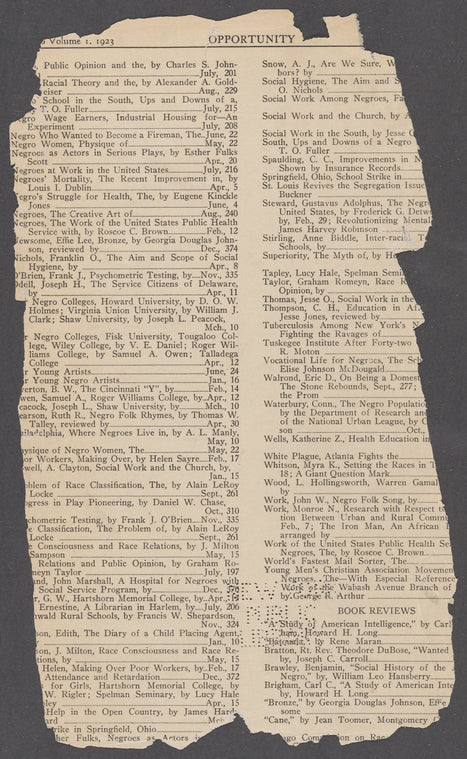 Volume 1, 1923
OPPORTUNITY
Public Opinion and the, by Charles S. John-
July, 201
Racial Theory and the, by Alexander A. Gold-
eiser Aug., 229
School in the South, Ups and Downs of a,
T. O. Fuller July, 215
egro Wage Earners, Industrial Housing for—An
Experiment July, 208
Negro Who Wanted to Become a Fireman, The June, 22
Negro Women, Physique of May, 22
Negroes as Actors in Serious Plays, by Esther Fulks
Scott Apr., 20
Negroes at Work in the United States July, 216
Negroes' Mortality, The Recent Improvement in, by
Louis I. Dublin Apr., 5
Negro's Struggle for Health, The, by Eugene Kinckle
Jones June, 4
Negroes, The Creative Art of Aug., 240
Negroes, The Work of the United States Public Health
Service with, by Roscoe C. Brown Feb., 12
Newsome, Effie Lee, Bronze, by Georgia Douglas John-
son, reviewed by Dec., 374
Nichols, Franklin O., The Aim and Scope of Social
Hygiene, by Apr., 8
O'Brien, Frank J., Psychometric Testing, by Nov., 335
Odell, Joseph H., The Service Citizens of Delaware,
by Apr., 11
Negro Colleges, Howard University, by D. O. W.
Holmes; Virginia Union University, by William J.
Clark; Shaw University, by Joseph L. Peacock,
Mch., 10
r Negro Colleges, Fisk University, Tougaloo Col-
lege, Wiley College, by V. E. Daniel; Roger Wil-
liams College, by Samuel A. Owen; Talladega
College Apr., 12
r Young Artists June, 24
r Young Negro Artists Jan., 16
erton, B. W., The Cincinnati "Y", by Feb., 14
wen, Samuel A., Roger Williams College, by Apr., 12
eacock, Joseph L., Shaw University, by Mch., 10
earson, Ruth R., Negro Folk Rhymes, by Thomas W.
Talley, reviewed by Apr., 30
Philadelphia, Where Negroes Live in, by A. L. Manly,
May, 10
hysique of Negro Women, The May, 22
or Workers, Making Over, by Helen Sayre Feb., 17
well, A. Clayton, Social Work and the Church, by,
Jan., 15
oblem of Race Classification, The, by Alain LeRoy
Locke Sept., 261
ogress in Play Pioneering, by Daniel W. Chase,
Oct., 310
ychometric Testing, by Frank J. O'Brien Nov., 335
e Classification, The Problem of, by Alain LeRoy
Locke Sept., 261
e Consciousness and Race Relations, by J. Milton
Sampson May, 15
Relations and Public Opinion, by Graham Ro-
meyn Taylor July, 197
nd, John Marshall, A Hospital for Negroes with
Social Service Program, by Dec.,
r, G. W., Hartshorn Memorial College, by Apr.,
Ernestine, A Librarian in Harlem, by July, 206
wald Rural Schools, by Francis W. Shepardson,
Nov., 324
on, Edith, The Diary of a Child Placing Agent,
Jan., 10
on, J. Milton, Race Consciousness and Race Re-
tions, by May, 15
Helen, Making Over Poor Workers, by Feb., 17
Attendance and Retardation Dec., 372
for Girls, Hartshorn Memorial College, by
W. Rigler; Spelman Seminary, by Lucy Hale
pley Apr., 15
Help in the Open Country, by James Hard-
ard
rike in Springfield, Ohio
her Fulks, Negroes as Actors in
Snow, A. J., Are We Sure, W
bors? by
Social Hygiene, The Aim and S
O. Nichols
Social Work Among Negroes, Fa
Social Work and the Church, by A
Social Work in the South, by Jesse O
South, Ups and Downs of a Negro
T. O. Fuller
Spaulding, C. C., Improvements in N
Shown by Insurance Records
Springfield, Ohio, School Strike in
St. Louis Revives the Segregation Issue
Buckner
Steward, Gustavus Adolphus, The Negro
United States, by Frederick G. Detwe
by, Feb., 29; Revolutionizing Mental
James Harvey Robinson
Stirling, Anne Biddle, Inter-racial T
Schools, by
Superiority, The Myth of, by Ho
Tapley, Lucy Hale, Spelman Semi
Taylor, Graham Romeyn, Race R
Opinion, by
Thomas, Jesse O., Social Work in the
Thompson, C. H., Education in Af
Jesse Jones, reviewed by
Tuberculosis Among New York's N
Fighting the Ravages of
Tuskegee Institute After Forty-two
R. Moton
Vocational Life for Negroes, The Sch
Elise Johnson McDougald
Walrond, Eric D., On Being a Domest
The Stone Rebounds, Sept., 277;
the Prom
Waterbury, Conn., The Negro Populatio
by the Department of Research and
of the National Urban League, by C
son Oct.,
Wells, Katherine Z., Health Education in
White Plague, Atlanta Fights the
Whitson, Myra K., Setting the Races in T
18; A Giant Question Mark
Wood, L. Hollingsworth, Warren Gamal
by
Work, John W., Negro Folk Song, by
Work, Monroe N., Research with Respect to
tion Between Urban and Rural Commu
Feb., 7; The Iron Man, An African I
arranged by
Work of the United States Public Health Se
Negroes, The, by Roscoe C. Brown
World's Fastest Mail Sorter, The
Young Men's Christian Association Movemen
Negroes, The—With Especial Reference
Work of the Wabash Avenue Branch of
by George R. Arthur
BOOK REVIEWS
"A Study of American Intelligence," by Carl
ham, Howard H. Long
by Rene Maran
Bratton, Rt. Rev. Theodore DuBose, "Wanted
by, Joseph C. Carroll
Brawley, Benjamin, "Social History of the
Negro," by, William Leo Hansberry
Brigham, Carl C., "A Study of American Inte
by, Howard H. Long
"Bronze," by Georgia Douglas Johnson, Effie
some
"Cane," by Jean Toomer, Montgomery
ago Commission on Rac